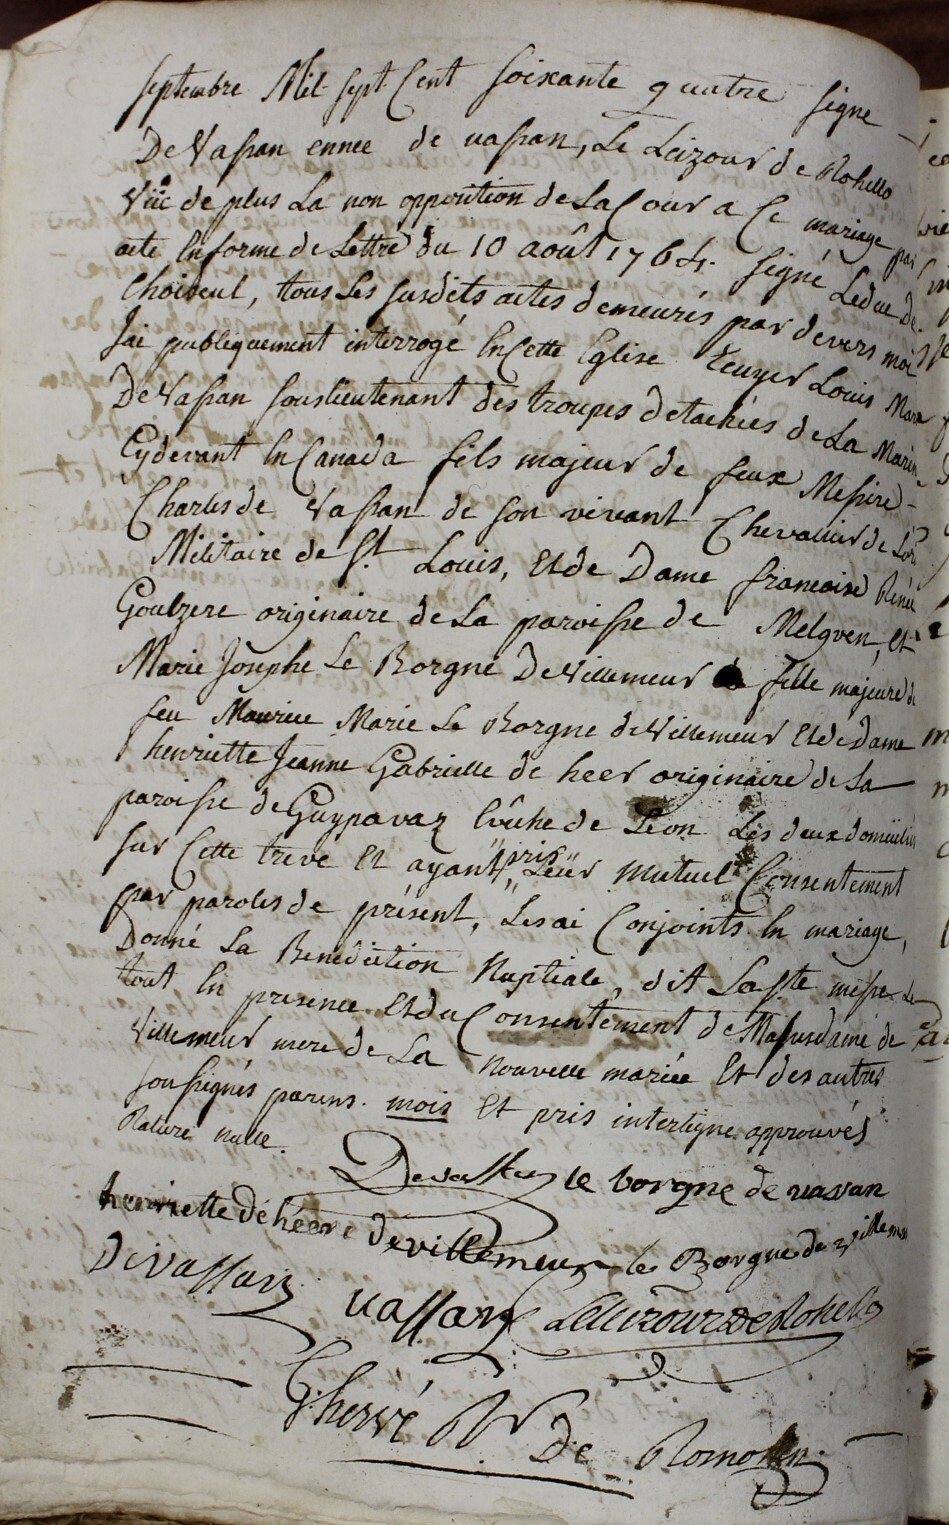 septembre Mil sept Cent soixante quatre signe
De Vassan ennee de vassan, Le Lizour de Rohello
Vüe de plus La non opposition de La Cour a Ce mariage par
acte En forme de Lettre du 10 août 1764. signé Leduc De
Choiseul, tous Les susdits actes demeurés par devers moi
Jai publiquement interrogé En Cette Eglise Ecuyer Louis Marie
De Vassan souslieutenant des troupes detachées de La Marine
Cydevant En Canada fils majeur de feux Messire
Charles de Vassan de son vivant Chevallier de Lor
Militaire de St. Louis, Et de Dame francoise Renée
Goulzere originaire de La paroisse de Melgven, Et
Marie Josephe Le Borgne De Villemeur fille majeure de
feu Maurice Marie Le Borgne de Villemeur Et de Dame
henriette Jeanne Gabrielle de heer originaire de La
paroisse de Guypavaz Evêché de Leon Les deux domiciliés
sur Cette treve Et ayant pris Leur mutuel Consentement
par paroles de présent, Les ai Conjoints En mariage,
Donné La Benediction Nuptiale, dit La Ste messe Le
tout En presence Et du Consentement de Masusdame de
Villemeur mere de La nouvelle mariée Et des autres
soussignés parens. mois Et pris interligne approuvés
Rature nulle.
Devassan le borgne de vasan
henriette de héere de villemeur le Borgne de villemeur
De Vassan vassan Le Lizour de Rohello
G. hervé Rr De Romolin